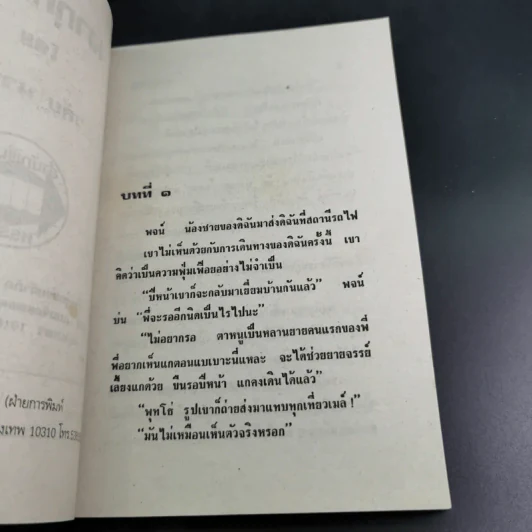 บทที่ ๑
พจน์ น้องชายของดิฉันมาส่งดิฉันที่สถานีรถไฟ
เขาไม่เห็นด้วยกับการเดินทางของดิฉันครั้งนี้ เขา
คิดว่าเป็นความฟุ่มเฟือยอย่างไม่จำเป็น
“ปีหน้าเขาก็จะกลับมาเยี่ยมบ้านกันแล้ว” พจน์
บ่น “พี่จะรออีกนิดเป็นไรไปนะ”
“ไม่อยากรอ ตาหนูเป็นหลานยายคนแรกของพี่
พี่อยากเห็นแกตอนแบเบาะนี่แหละ จะได้ช่วยยายจรรย์
เลี้ยงแกด้วย ขืนรอปีหน้า แกคงเดินได้แล้ว”
“พุทโธ่ รูปเขาก็ถ่ายส่งมาแทบทุกเที่ยวเมล์ !”
“มันไม่เหมือนเห็นตัวจริงหรอก”
(ฝ่ายการพิมพ์
งเทพ 10310 โทร.